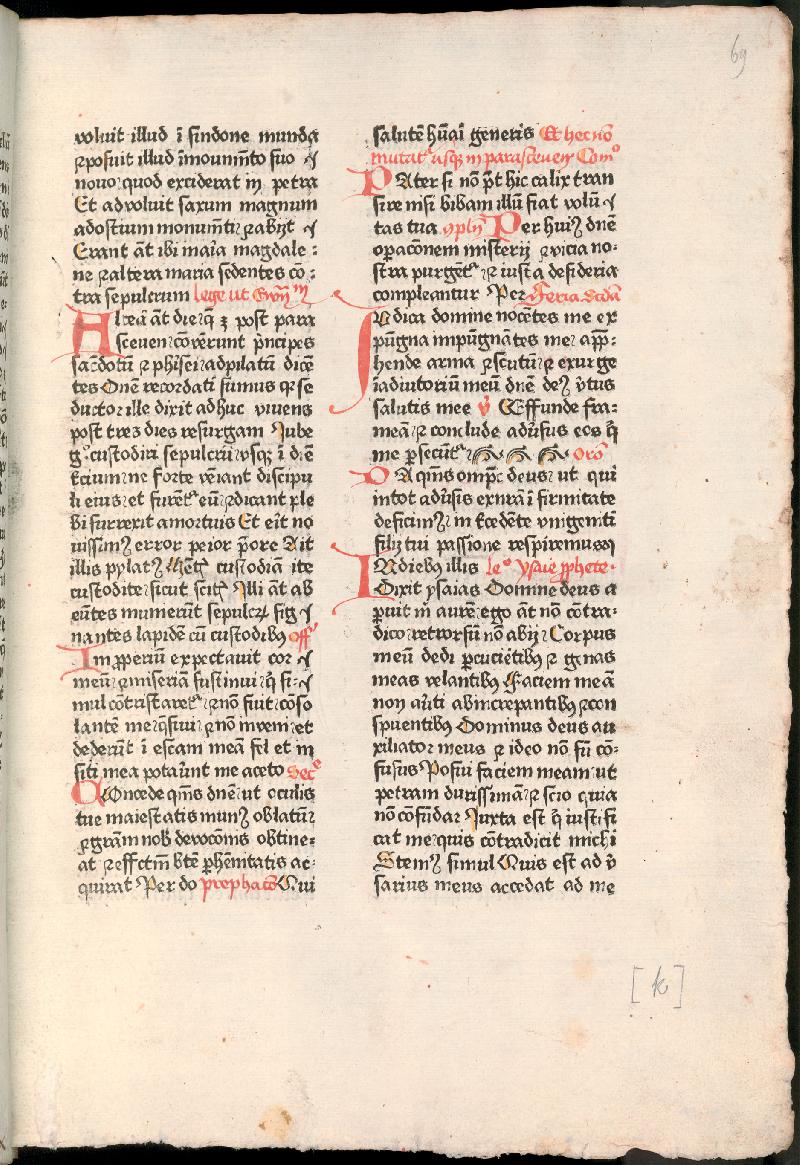 69
voluit illud ī sindone munda
ꝛposuit illud īmoum̄nto suo
nouo quod exciderat in petra
Et aduoluit saxum magnum
adostium monumēti ꝛabijt
Erant āt ibi maria magdale :
ne ꝛaltera maria sedentes cō :
tra sepulcrum lege ut
Alteā āt die q̄ ē post para
sceuen cōuēerunt p̄ncipes
sac̄dotū ꝛ phisei adpilatū dicē
tes Dn̄e recordati sumus qꝛ se
ductor ille dixit adhuc viuens
post tres dies resurgam Iube
gͦ custodiri sepulcrū vsqꝫ ī diē
tcium ne forte veniant discipu
li eius et furent᷑ eū ꝛdicant ple
bi surrexit amortuis Et erit no
uissimꝰ error peior p̄ore Ait
illis pylatꝰ Hēt custodiā ite
custodite sicut scitꝭ Illi āt ab
eūtes munierūt sepulcꝝ sig
nantes lapidē cū custodibꝰ off᷑
Imꝓperiū expectauit cor
meū ꝛmiseriam sustinui q̄ si
mul cōtristaret᷑ ꝛnō fuit cōso
lantē me q̄siui ꝛnō inueni et
dederūt ī escam meā fel et in
siti mea potaūnt me aceto Sec͛
COncede qm̄s dn̄e ut oculis
tue maiestatis munꝰ oblatū
ꝛgram nob deuocōnis obtine-
at ꝛ effctm̄ bt̄e ꝑhēnitatis ac-
quirat Per do prephacō Qui
salutē hūāi generis Et hec nō
mutat᷑ usqꝫ in parasceuen Comͦ
PAter si nō pt̄ hic calix tran
sire nisi bibam illū fiat volū
tas tua ꝯplēn Per huiꝰ dn̄e
oꝑacōnem misterij ꝛvicia no-
stra purgent᷑ ꝛ iusta desideria
compleantur Per Feria scd̄a
IUdica domine nocētes me ex
pūgna impūgnātes me app̄-
hende arma ꝛscutū ꝛ exurge
īadiutoriū meū dn̄e deꝰ v̄tus
salutis mee v̄ Effunde fra-
meā ꝛ conclude adūsus eos q̄
me ꝑsecūt᷑ Orō
DA qm̄s omp̄c deus ut qui
intot adūsis exn̄rā ī firmitate
deficimꝰ in t̄cedēte vnigeniti
filij tui passione respiremus
INdiebꝰ illis leͦ ysaie ꝓphete
Dixit ysaias Domine deus a
ꝑuit m̄ aurē ego āt nō cōtra-
dico retrorsū nō abij Corpus
meū dedi ꝑcuciētibꝰ ꝛ genas
meas velantibꝰ Faciem meā
non aūti abincrepantibꝰ ꝛcon
spuentibꝰ Dominus deus au
xiliator meus ꝛ ideo nō sū cō-
fusus Posui faciem meam ut
petram durissimā ꝛ scio quia
nō cōfūdar Iuxta est q̄ iustifi
cat me quis cōtradicit michi
Stemꝰ simul Quis est ad v̄
sarius meus accedat ad me
[k]